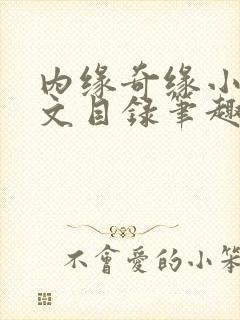 内缘奇缘小
文目录笔趣
不會愛的小笨